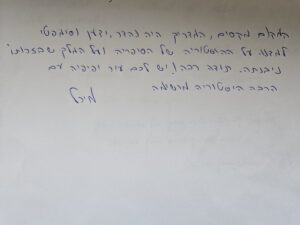 המקום מקסים, המדריך היה נהדר, ידען וסימפטי
למדנו על ההיסטוריה של הספריה ועל המלך
ניבנתה. תודה רבה! יש לכם עיר יפיפיה עם
הרבה היסטוריה מרשימה
מיכל